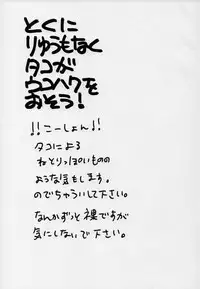 とくに
りゅうもなく
タコが
ウコハクを
おそう！
!!こーしょん!!
タコによる
ねとりっぽいものの
ような気もします。
のでちゅういして下さい。
なんかずっと裸ですが
気にしないで下さい。